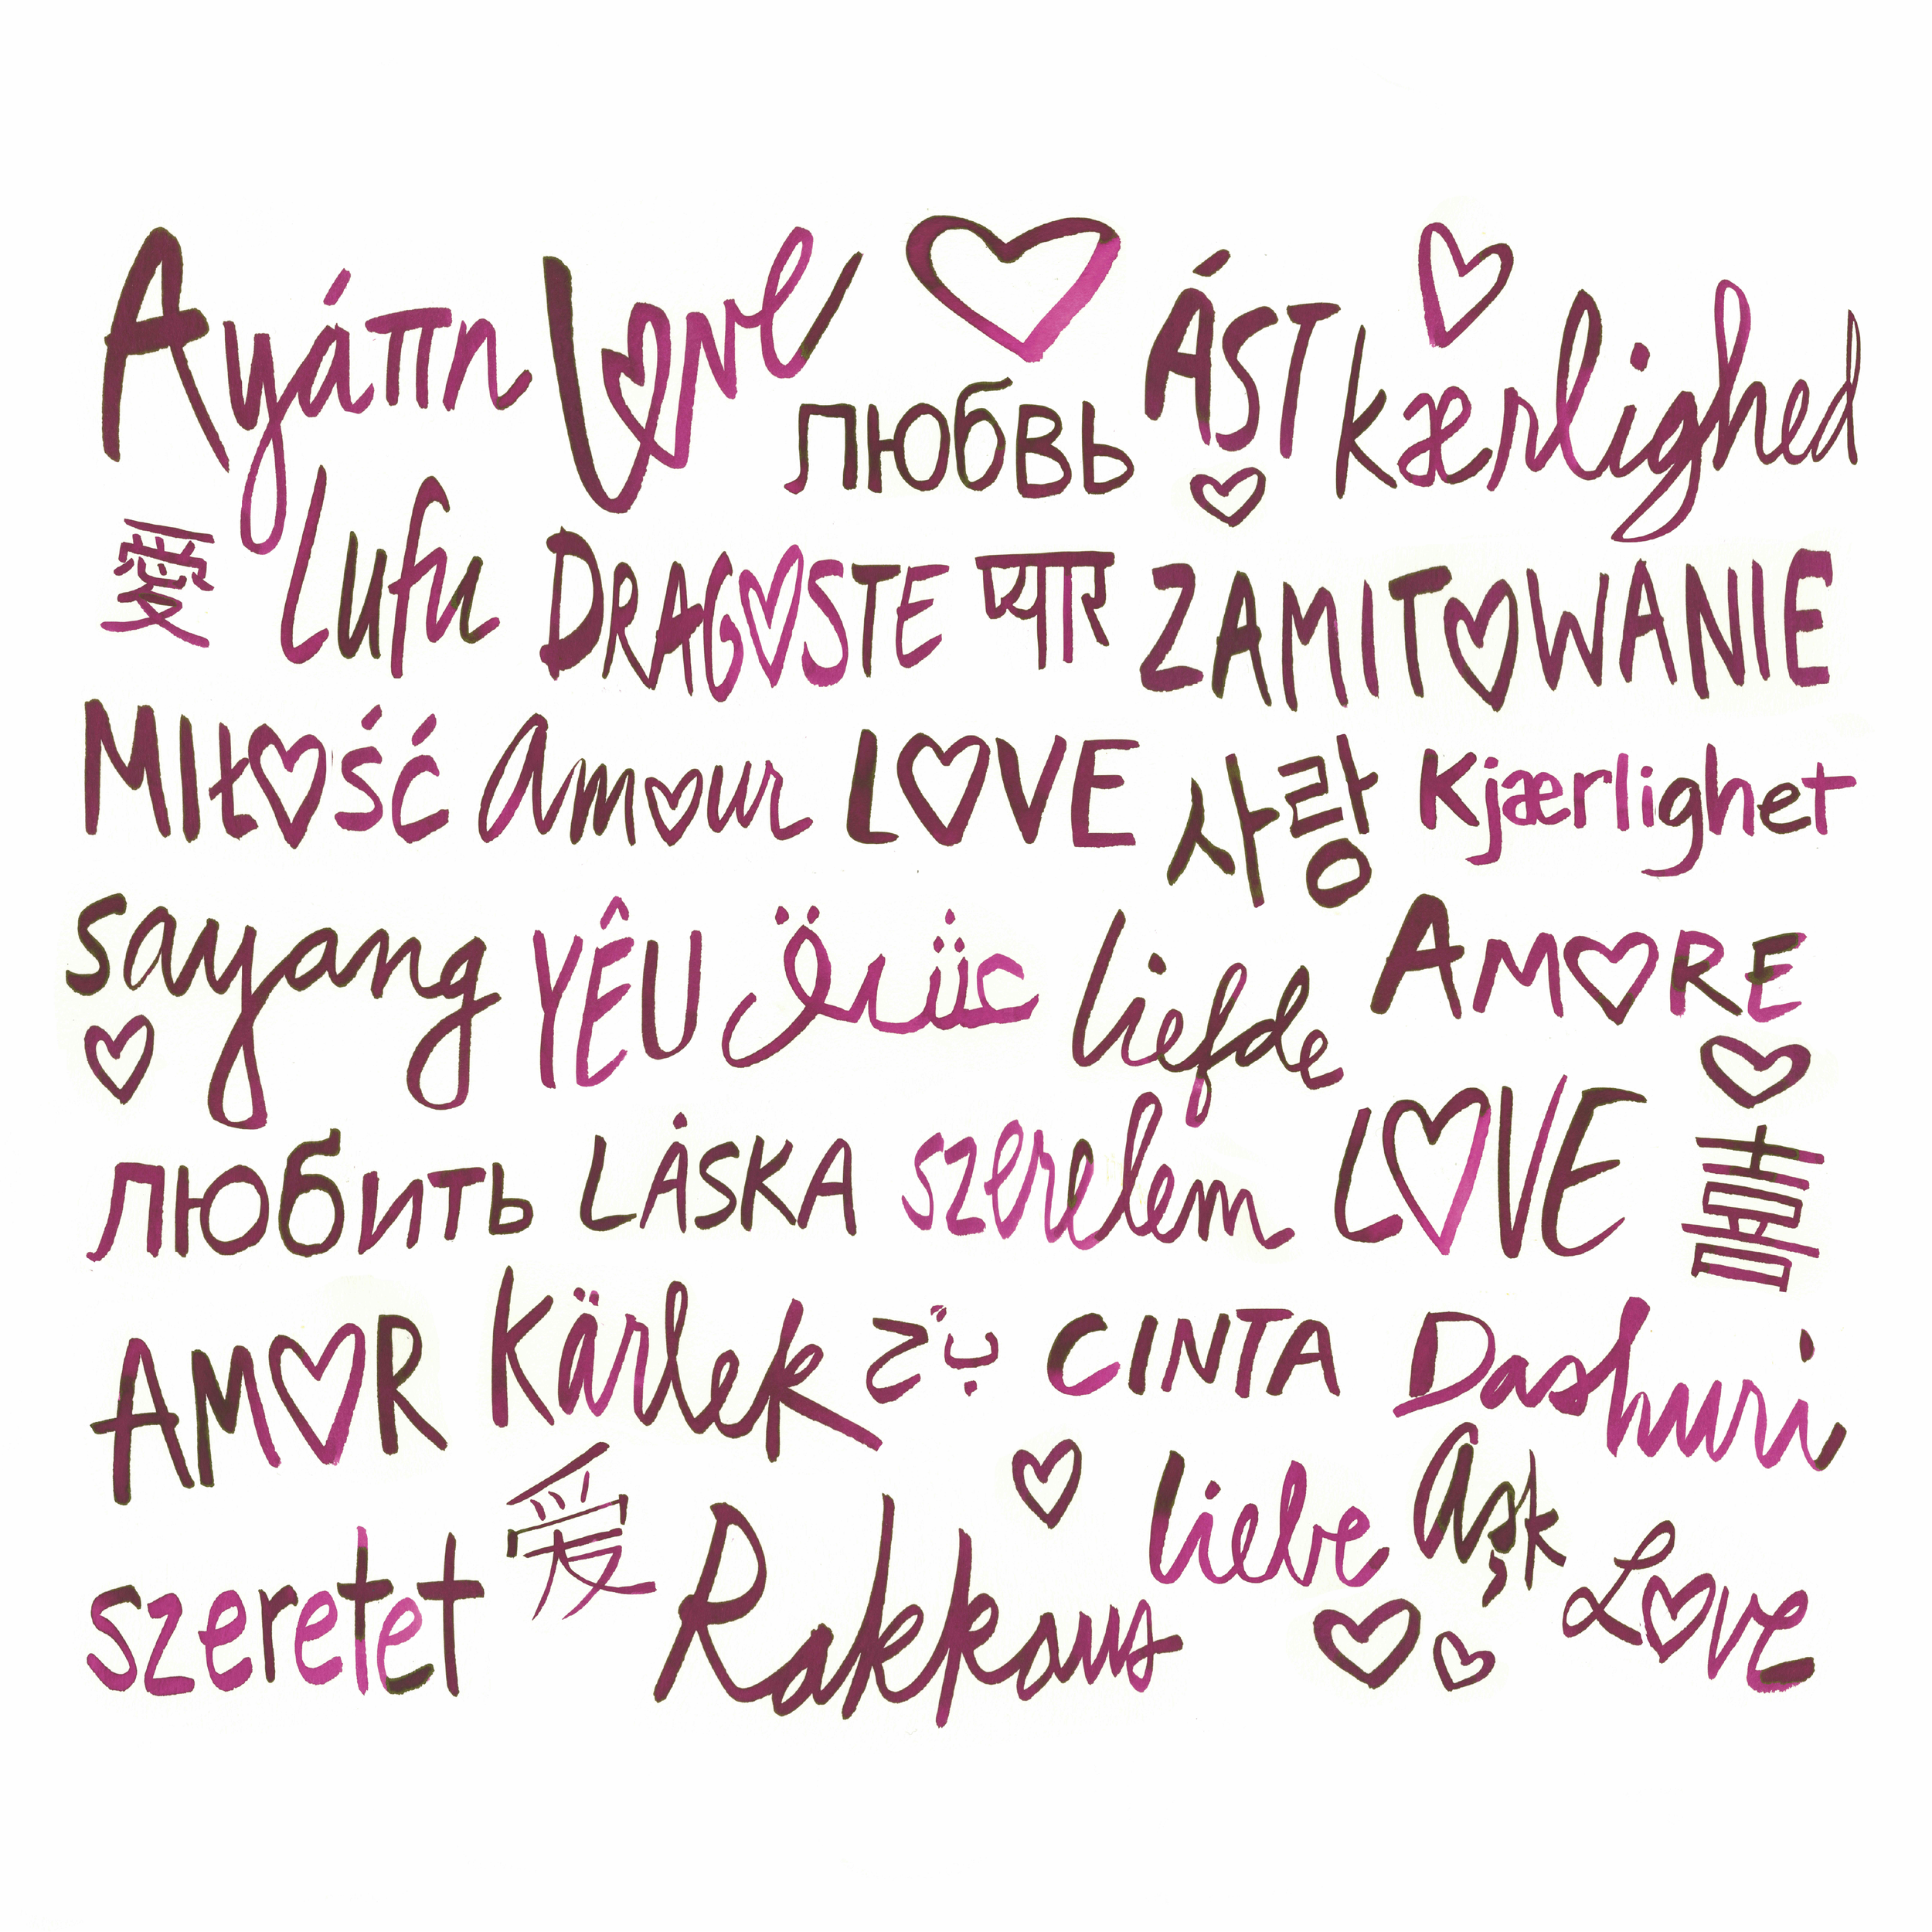 Αγάπη Love любовь ÁST Kærlighed
愛 Luh DRAGOSTE प्यार ZAMITOWANIE
MIŁOŚĆ Amour LOVE 사랑 Kjærlighet
sayang YÊU liefde AMORE
любить LÁSKA szerelem LOVE 喜
AMOR Kärlek CINTA Dashuri
szeretet 爱 Rakkaus liebe Aşk Love